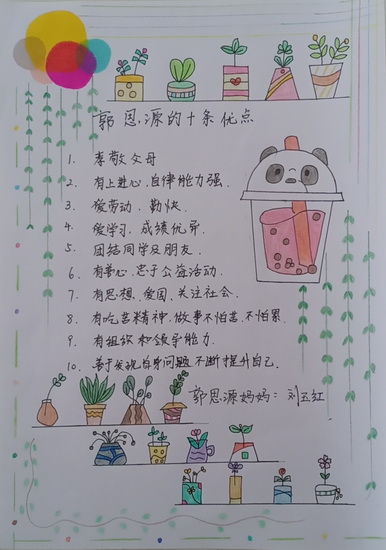 郭恩源的十条优点
1. 孝敬父母
2. 有上进心,自律能力强.
3. 爱劳动,勤快.
4. 爱学习,成绩优异.
5. 团结同学及朋友.
6. 有善心,忠于公益活动.
7. 有思想、爱国、关注社会.
8. 有吃苦精神,做事不怕苦,不怕累.
9. 有组织和领导能力.
10. 善于发现自身问题,不断提升自己.
郭恩源妈妈:刘五红